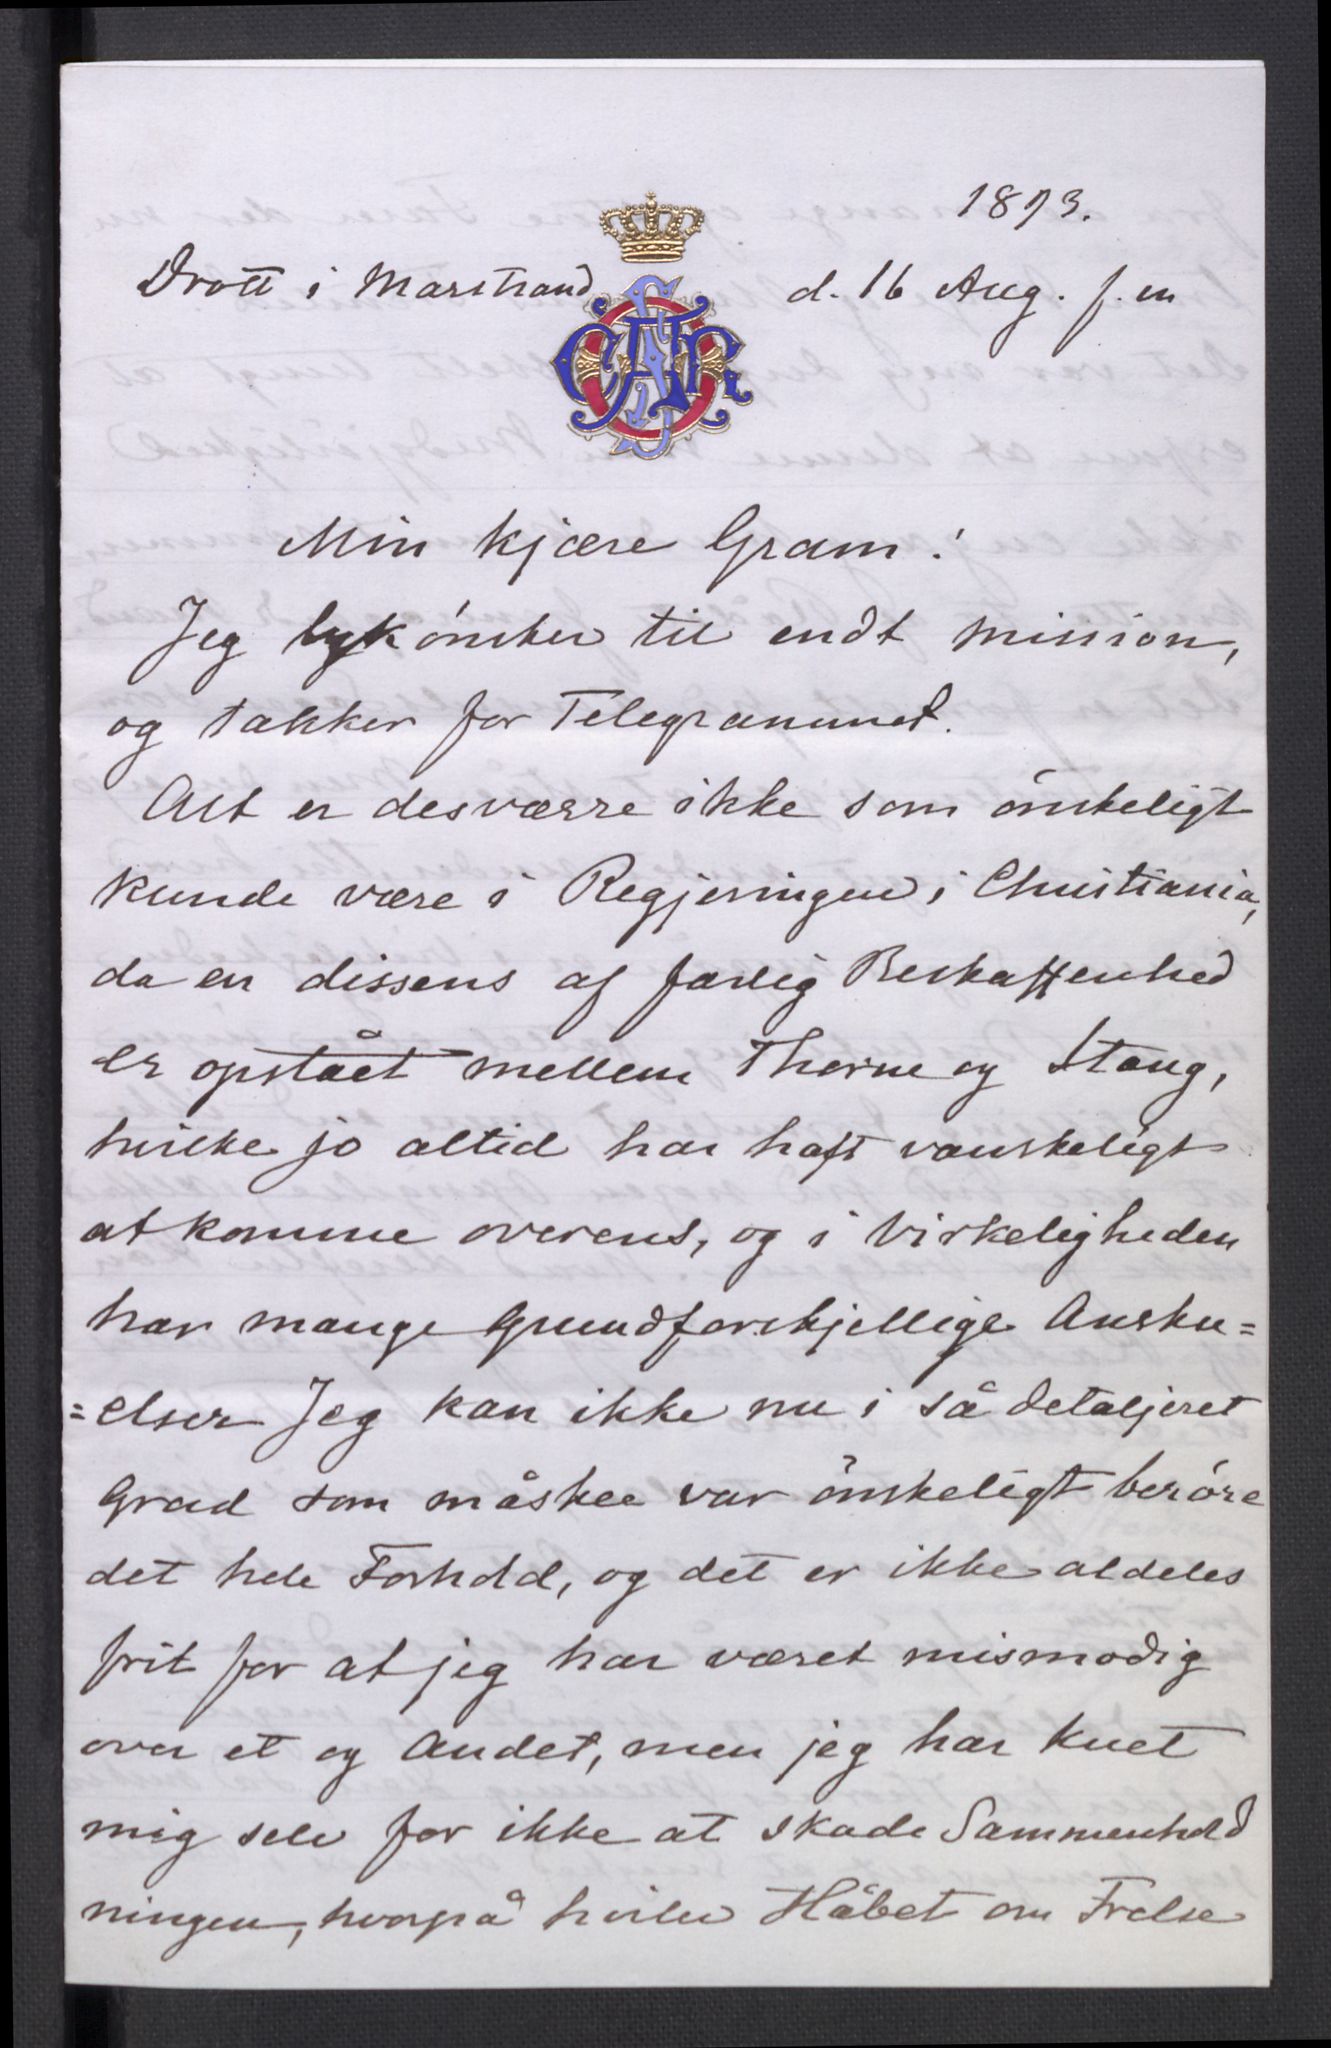 1893.
Drott i Marstrand d. 16 Aug. f. m
Min kjære Gram!
Jeg lykónsker til endt mission,
og takker for Telegrammet.
Alt er desværre ikke som ónskeligt
kunde være i Regjeringen i Christiania,
da en dissens af farlig Beskaffenhed
er opstået mellem Thorne og Stang,
hvilke jo altid har haft vanskeligt
at komme overens, og i Virkeligheden
har mange grundforskjellige Ansku=
=elser Jeg kan ikke nu i så detaljeret
Grad som måskee var ónskeligt beróre
det hele Forhold, og det er ikke aldeles
frit for at jeg har været mismodig
over et og Andet, men jeg har kuet
mig selv for ikke at skade Sammenhold
ningen, hvorpå hviler Håbet om Frelse